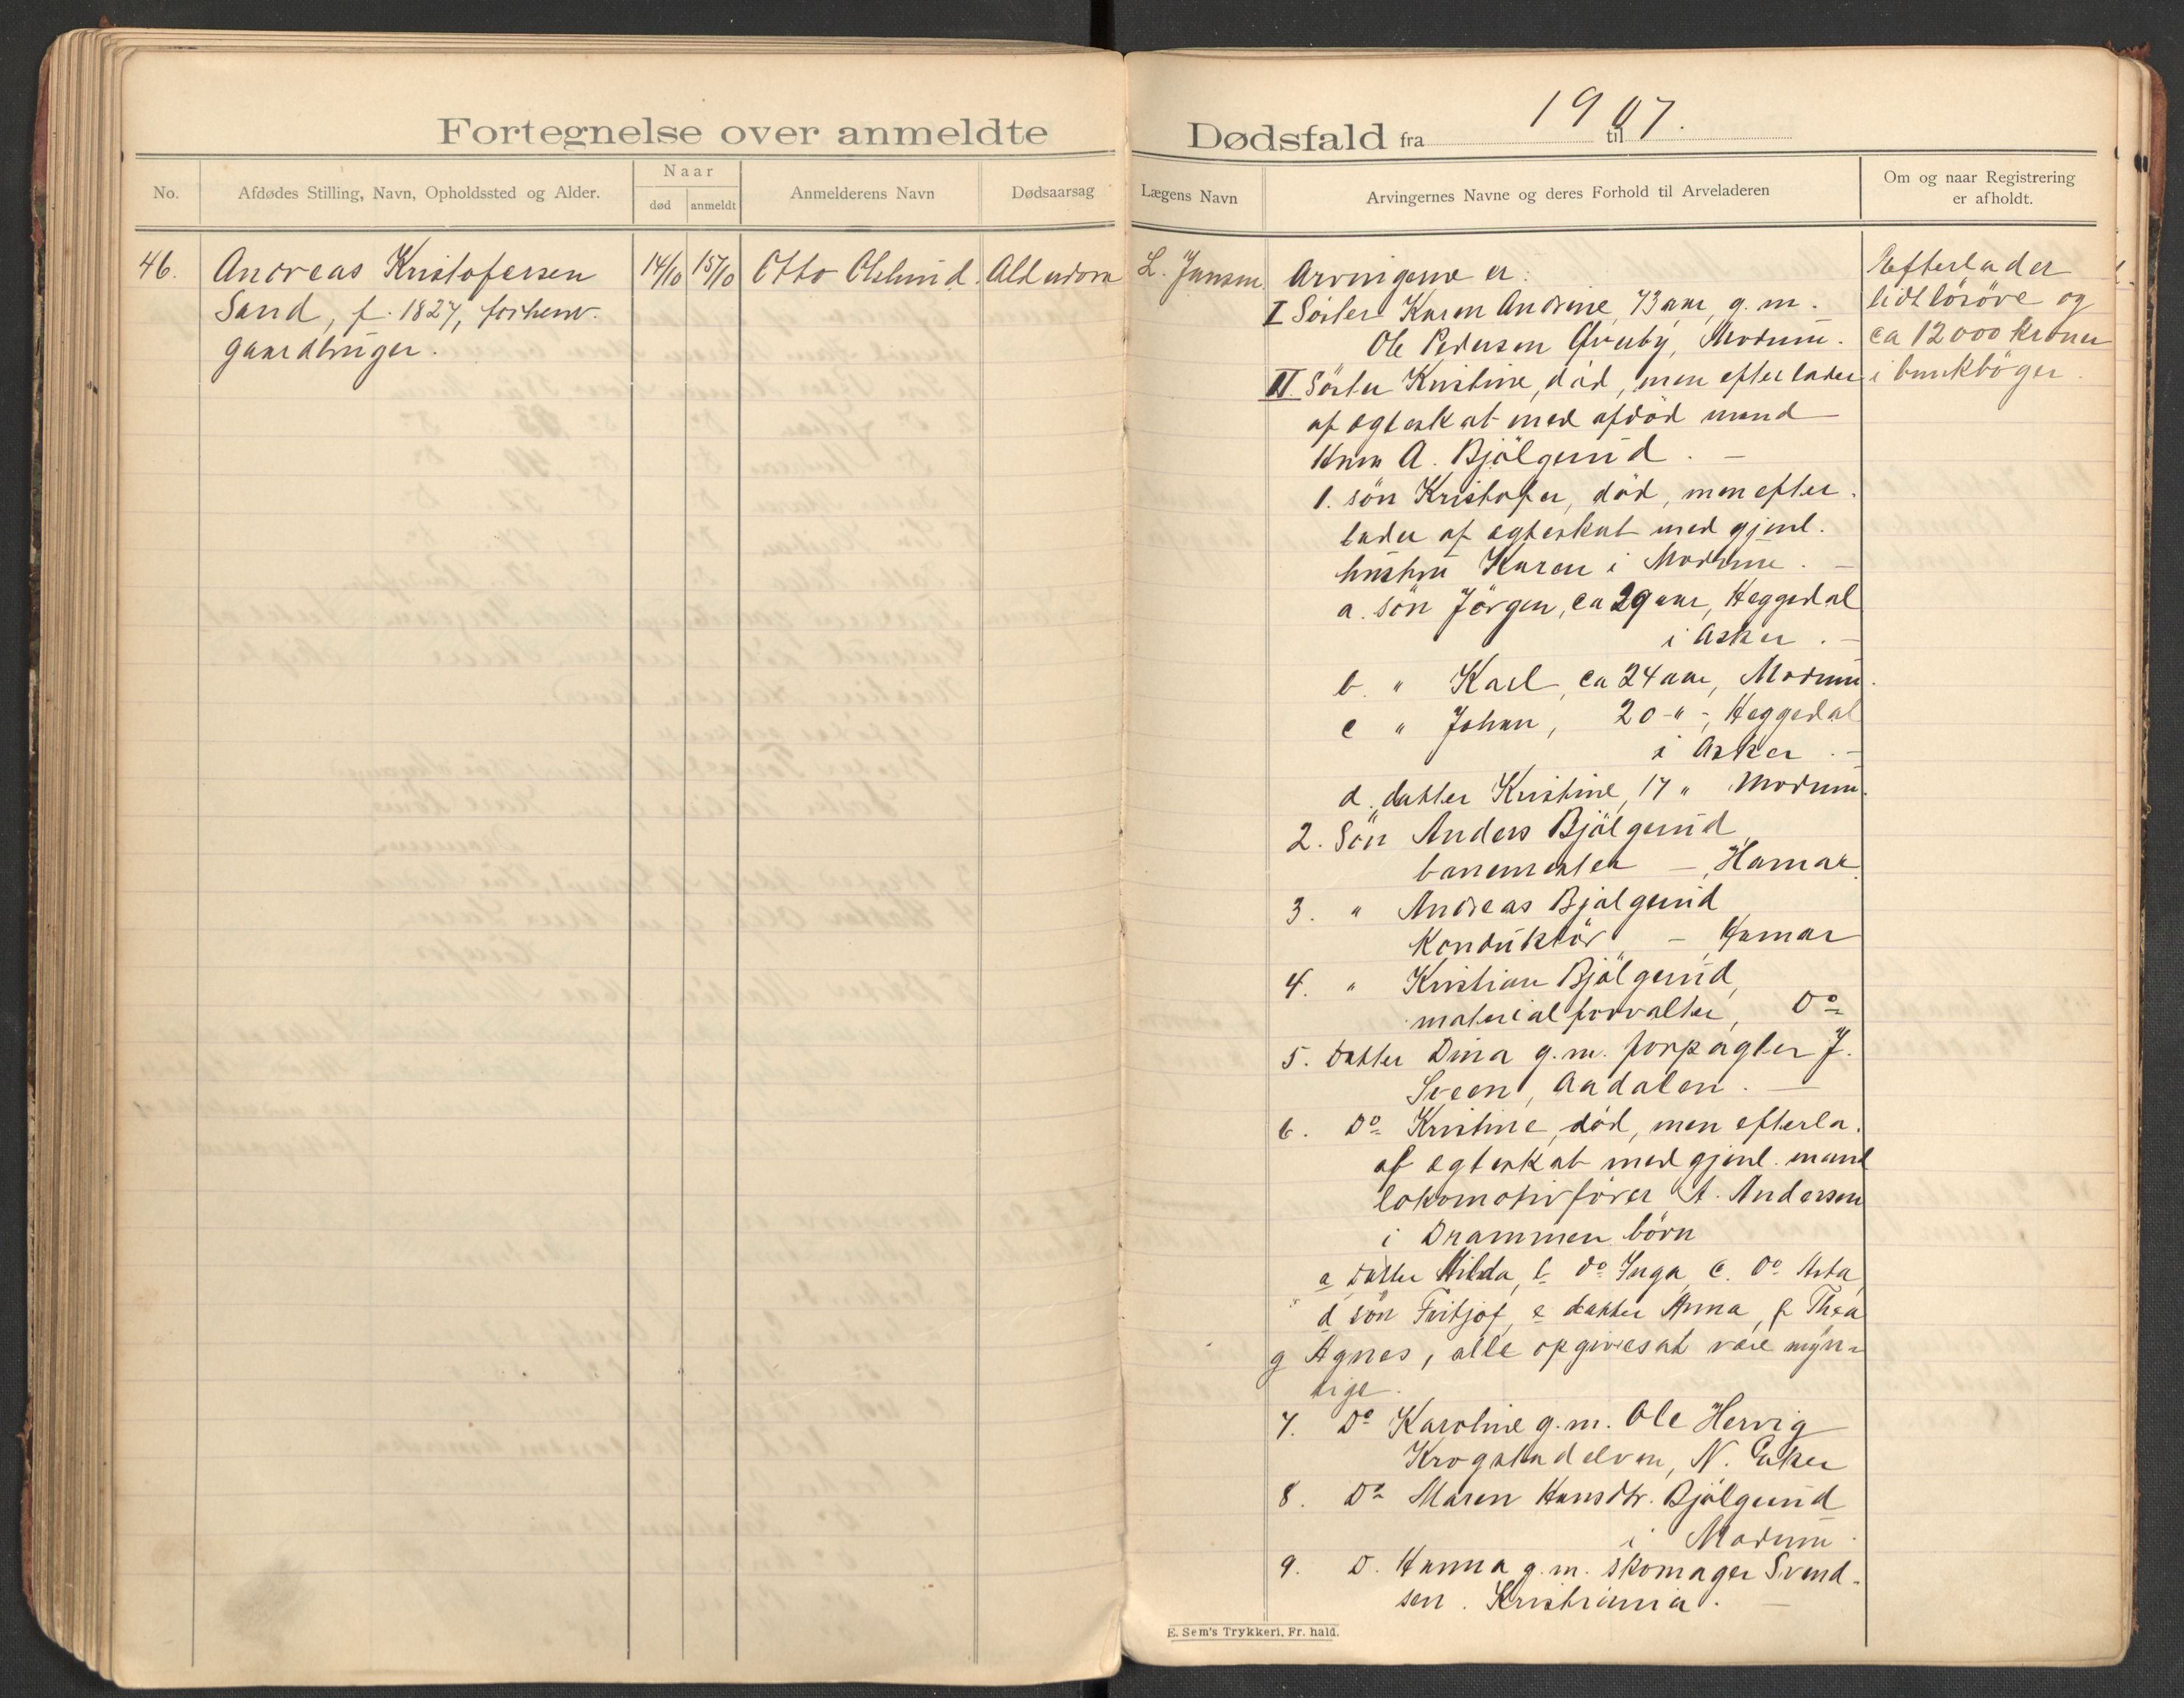 Fortegnelse over anmeldte
No.
Afdødes Stilling, Navn, Opholdssted og Alder.
Naar
død
anmeldt
Anmelderens Navn
Dødsaarsag
46.
Andreas Kristofersen
Sand, f. 1827, forhenv.
gaardbruger.
14/10
15/10
Otto Olslund.
Alderdom
Dødsfald fra 1907. til
Lægens Navn
Arvingernes Navne og deres Forhold til Arveladeren
Om og naar Registrering
er afholdt.
L. Jensen.
Arvingerne er:
I Søster Karen Andrine, 73 aar, g. m.
Ole Pedersen Modum.
II. Søster Kristine, død, men efterlader
af egteskab med afdød mand
Hans A. Bjölgerud. –
1. søn Kristofer, død, men efter-
lader af egteskab med gjenl.
hustru Karen i Modum. –
a. søn Jörgen, ca 29 aar, Heggedal
i Asker. –
b. " Karl, ca 24 aar, Modum.
c " Johan, 20 -"-, Heggedal
i Asker. –
d. datter Kristine, 17 " Modum.
2. Sön Anders Bjölgerud,
banemester –, Hamar.
3. " Andreas Bjölgerud
Konduktör – Hamar
4. " Kristian Bjölgerud,
materialforvalter, Do
5. Datter Dina g. m. forpagter J.
Sveen, Aadalen. –
6. Do Kristine, död, men efterla.
af egteskab med gjenl. mand
lokomotivförer A. Andersen
i Drammen börn
a datter Hilda, b do Inga, c. Do Asta,
d sön Fritjof, e datter Anna, f Thea
g Agnes, alle opgives at være myn-
dige.
7. Do Karoline g. m. Ole Hervig
Krogstadelven, N. Eker
8. Do Maren Hansdtr. Bjölgerud
i Modum.
9. D. Hanna g. m. skomager Svend-
sen. Kristiania. –
Efterlader
lidt lösöre og
ca 12000 kroner
i bankböger.
E. Sem's Trykkeri, Fr. hald.